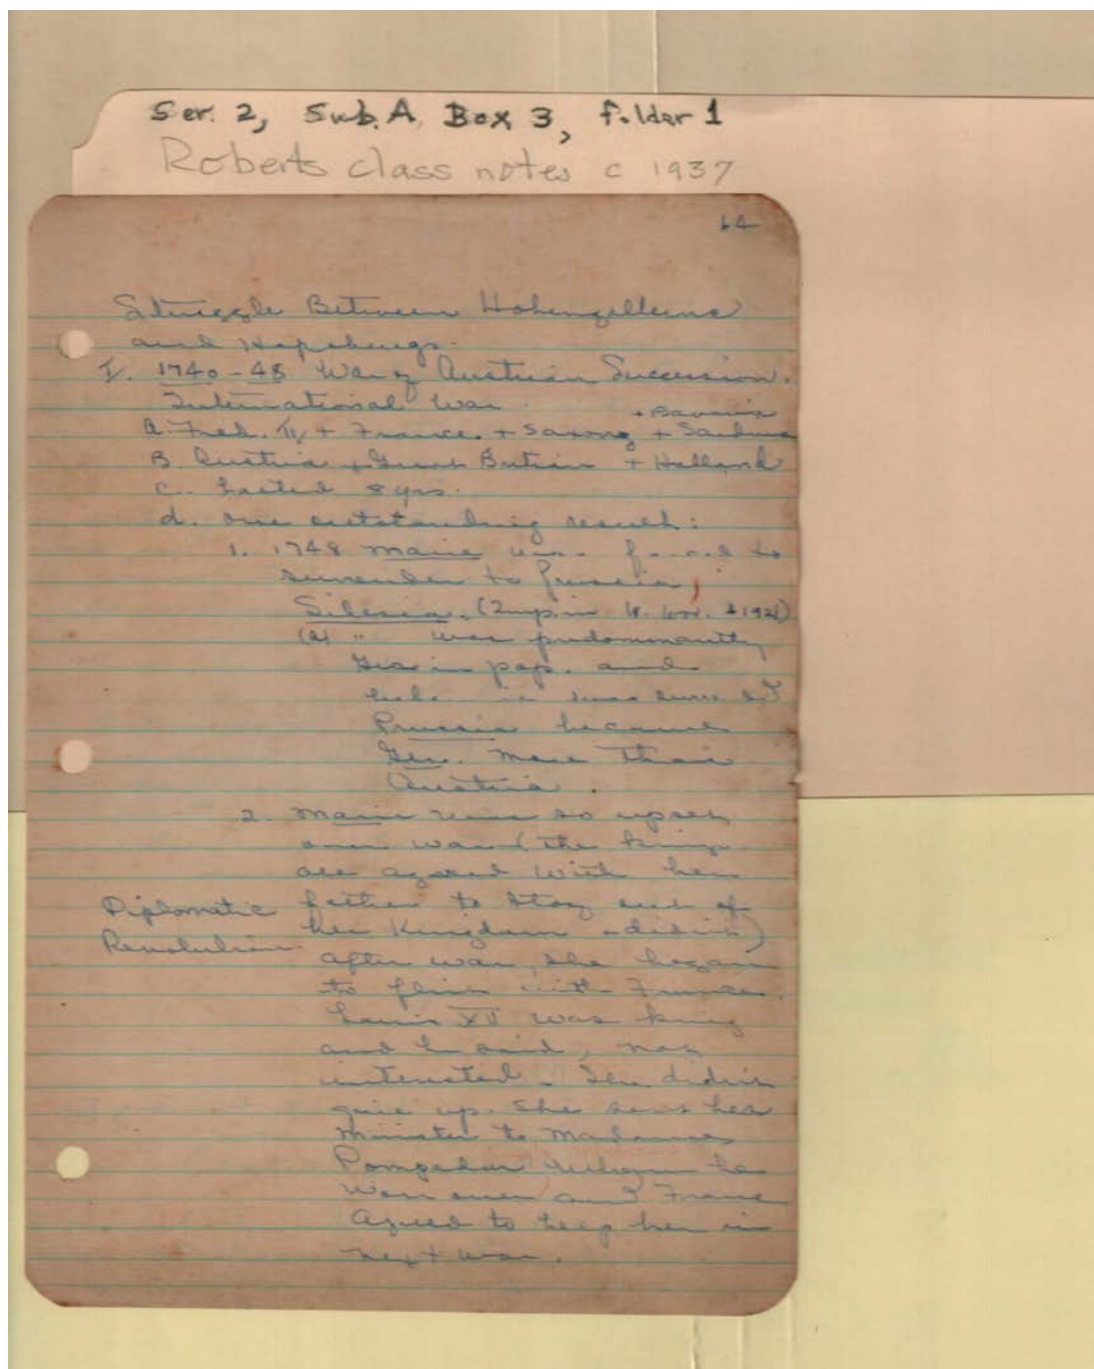 Ser. 2, Sub. A, Box 3, folder 1
Roberts class notes c 1937
64
Struggle Between Hohenzollerns
and Hapsburgs.
I. 1740-48 War of Austrian Succession.
International War
+ Bavaria
a. Fred. II + France + Saxony + Sardinia
B. Austria + Great Britain + Holland
c. Lasted 8 yrs.
d. one outstanding result:
1. 1748 Marie was forced to
surrender to Prussia,
Silesia. (2 imp. in W. War. + 1921)
(a) " was predominantly
Ger. in pop. and
Prussia became
Ger. more than
Austria.
2. Marie was so upset
over war (the kings
all agreed with her
father to stay out of
her Kingdom - didn't)
Diplomatic
Revolution
after war, she began
to flirt with France.
Louis XV was king
and he said, not
interested. She didn't
give up. She sent her
minister to Madame
Pompadour whom he
won over and France
agreed to help her in
next war.